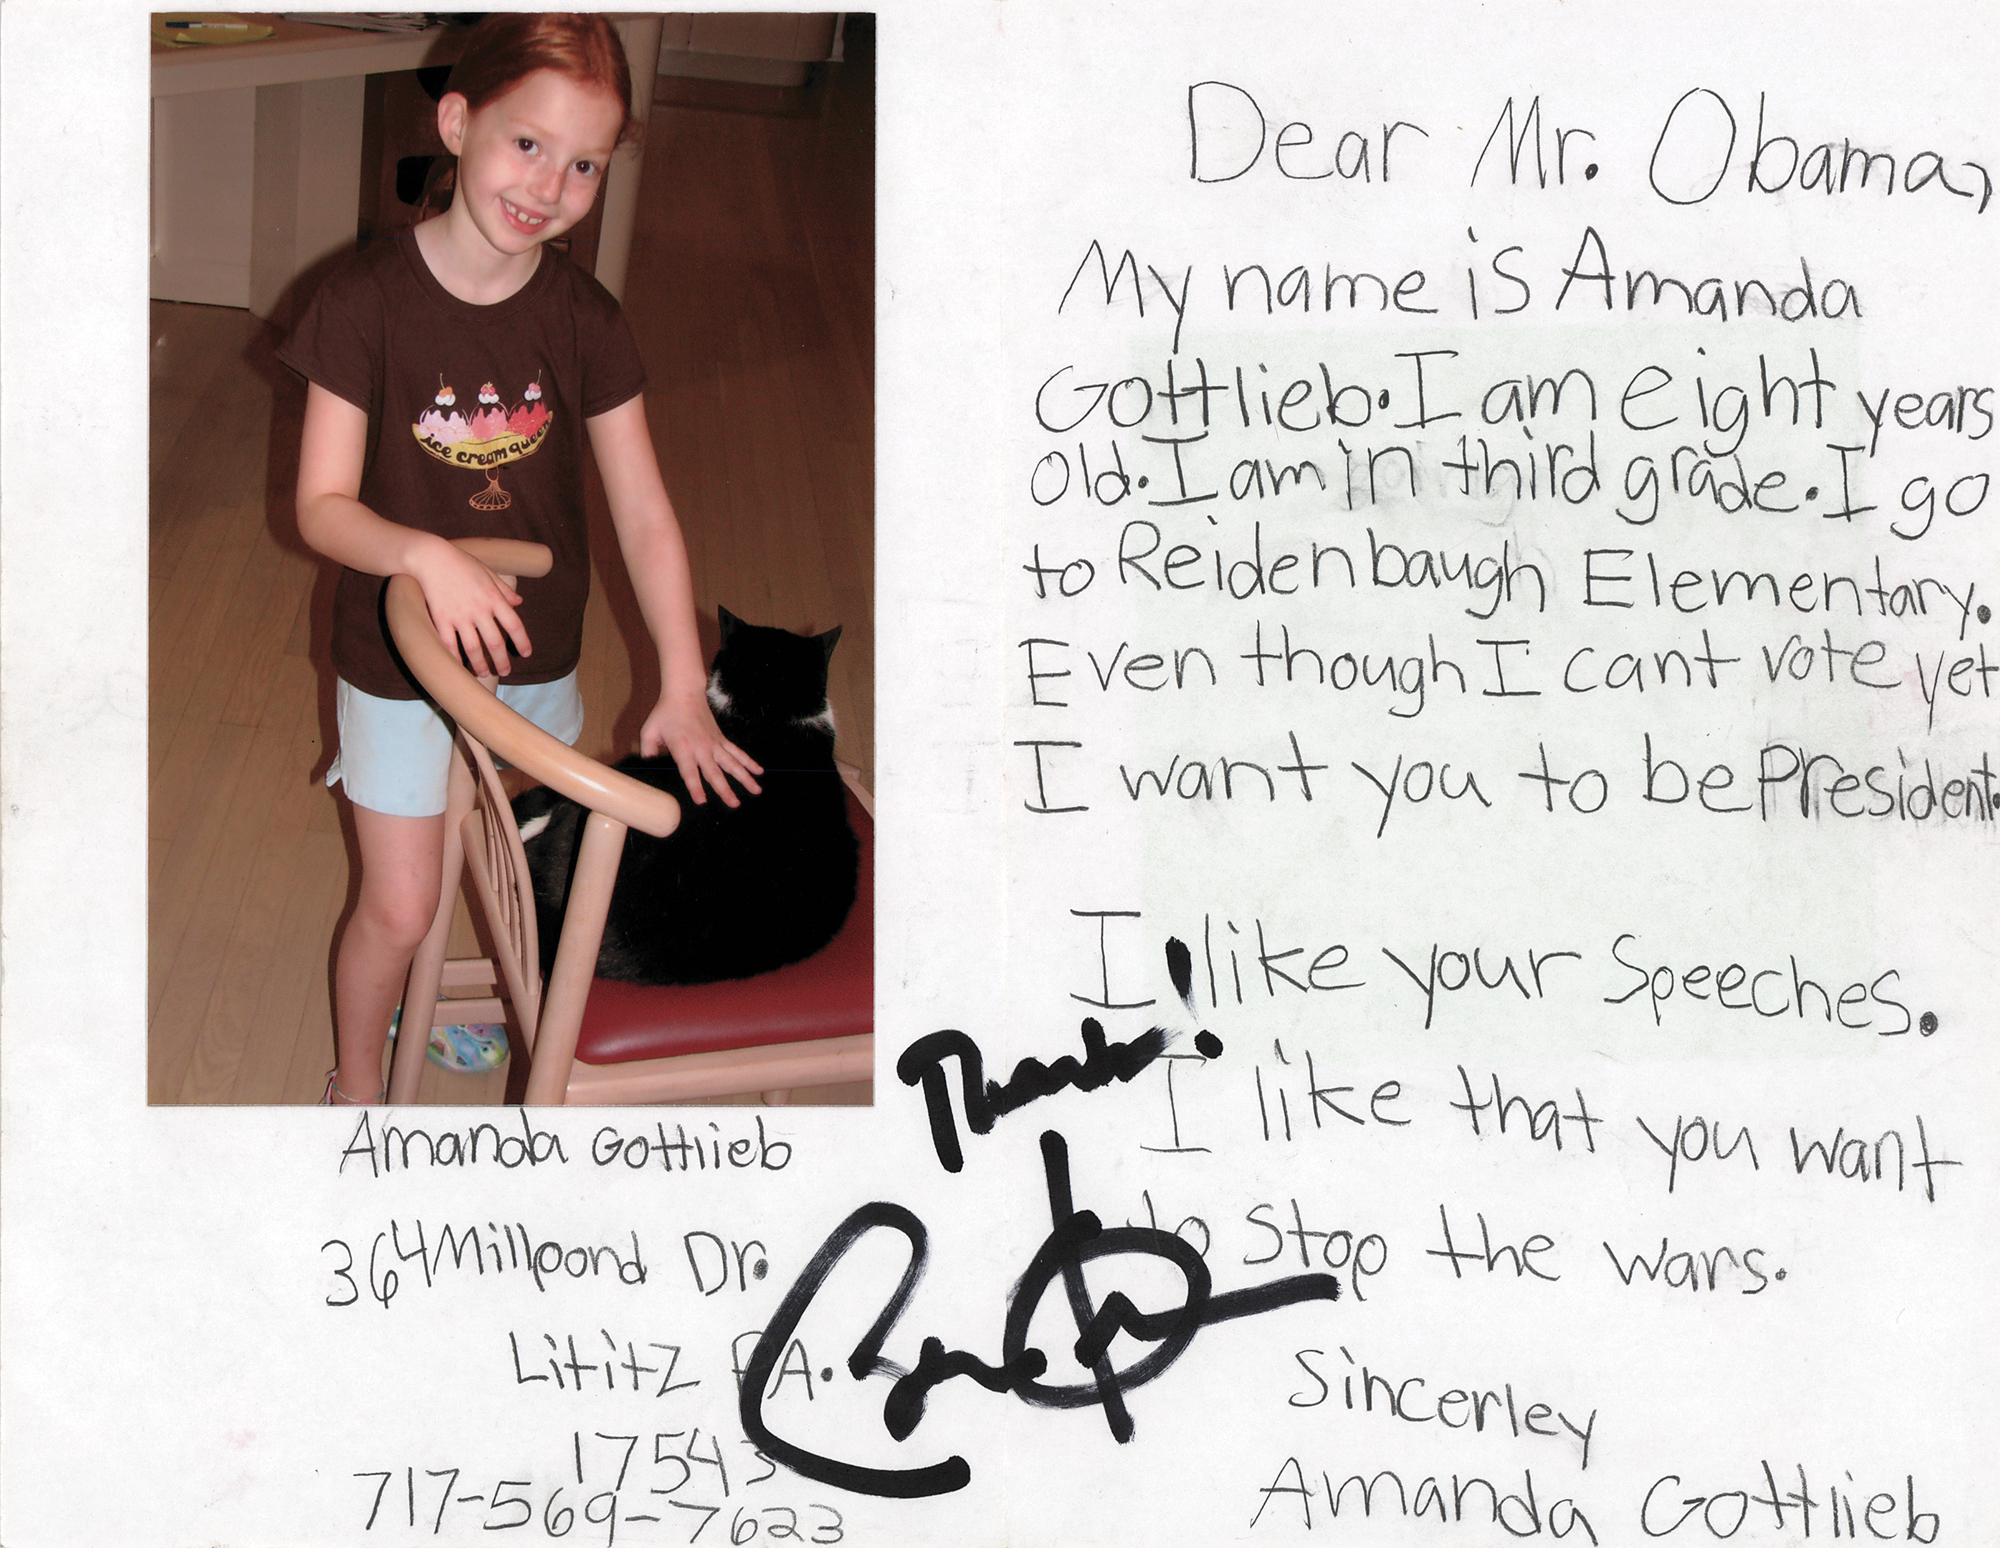 ice cream queen
Amanda Gottlieb
364 Millpond Dr.
Lititz PA.
17543
717-569-7623
Dear Mr. Obama,
My name is Amanda
Gottlieb. I am eight years
old. I am in third grade. I go
to Reidenbaugh Elementary.
Even though I cant vote yet
I want you to be President.
I like your Speeches.
Thanks!
I like that you want
to stop the wars.
Sincerley
Amanda Gottlieb